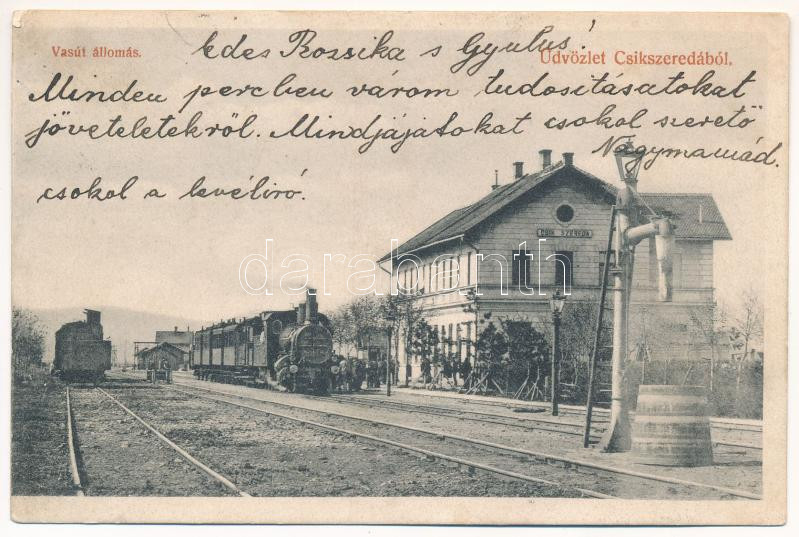 Vasút állomás.
Üdvözlet Csikszeredából.
Edes Rozsika s Gyulus!
Minden percben várom tudositásatokat
jöveteletekről. Mindjájatokat csokol szerető
Nagymamád.
csokol a levéliró.
CSIK SZEREDA
darabanth